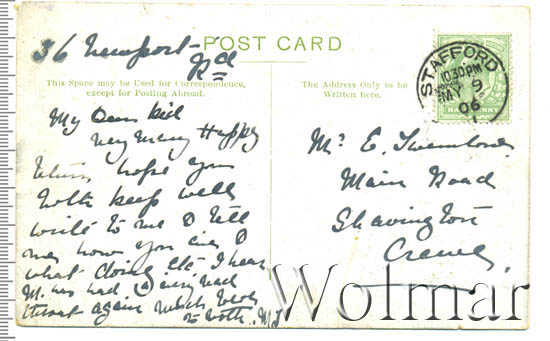 POST CARD
36 Newport Rd
This Space may be Used for Correspondence,
except for Posting Abroad.
The Address Only to be
Written here.
STAFFORD
10.30PM
MY 9
06
My Dear
Very Many Happy
hope you
both keep well
write to me & tell
me how you are &
what doing etc I hear
M. has had a very bad
throat again much love
to both. M.J
Mr E.
Main Road
Shavington
Crewe
Wolmar